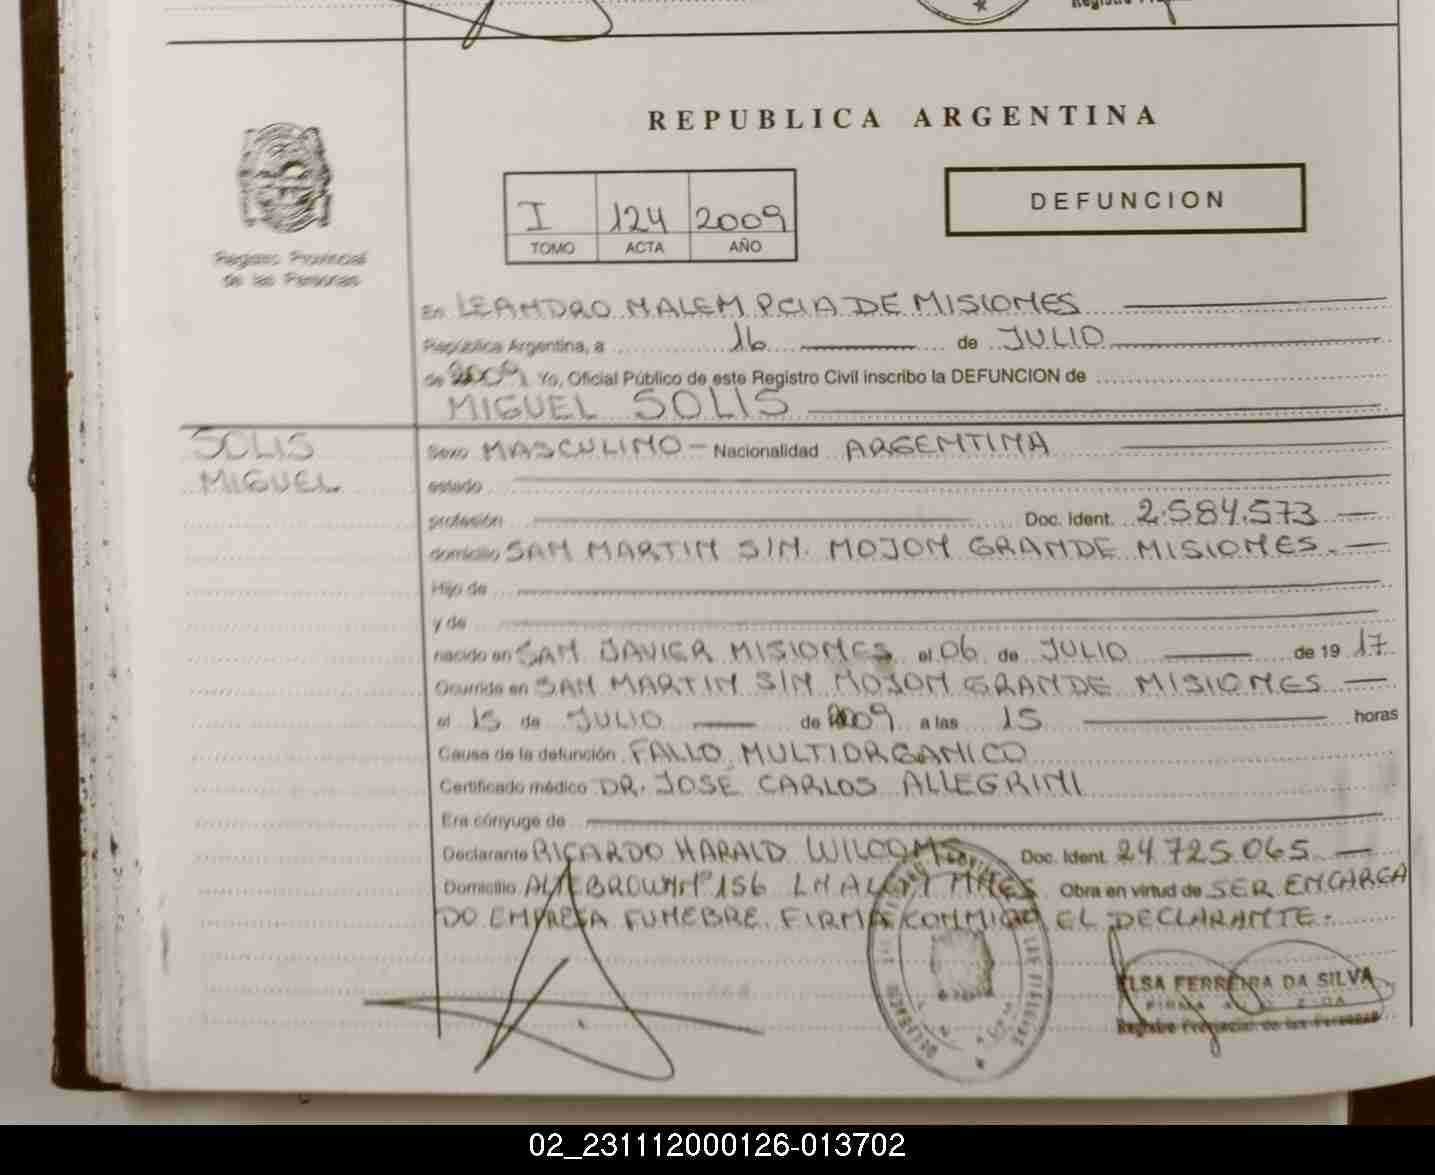 REPUBLICA ARGENTINA
DEFUNCION
I 124 2009
TOMO ACTA AÑO
Registro Provincial
de las Personas
En LEANDRO N ALEM PCIA DE MISIONES
República Argentina, a 16 de JULIO
de 2009 Yo, Oficial Público de este Registro Civil inscribo la DEFUNCION de
MIGUEL SOLIS
SOLIS
MIGUEL
Sexo MASCULINO - Nacionalidad ARGENTINA
estado
profesión Doc. Ident. 2.584.573
domicilio SAN MARTIN S/N. MOJON GRANDE MISIONES.
Hijo de
y de
nacido en SAN JAVIER MISIONES el 06 de JULIO de 19 17
Ocurrida en SAN MARTIN S/N MOJON GRANDE MISIONES
el 15 de JULIO de 2009 a las 15 horas
Causa de la defunción FALLO MULTIORGANICO
Certificado médico DR. JOSE CARLOS ALLEGRINI
Era cónyuge de
Declarante RICARDO HARALD Doc. Ident. 24.725.065
Domicilio ALTE BROWN Nº 156 L N ALEM MNES Obra en virtud de SER ENCARGA
DO EMPRESA FUNEBRE. FIRMA CONMIGO EL DECLARANTE.
ELSA FERREIRA DA SILVA
Registro Provincial de las Personas
02_231112000126-013702